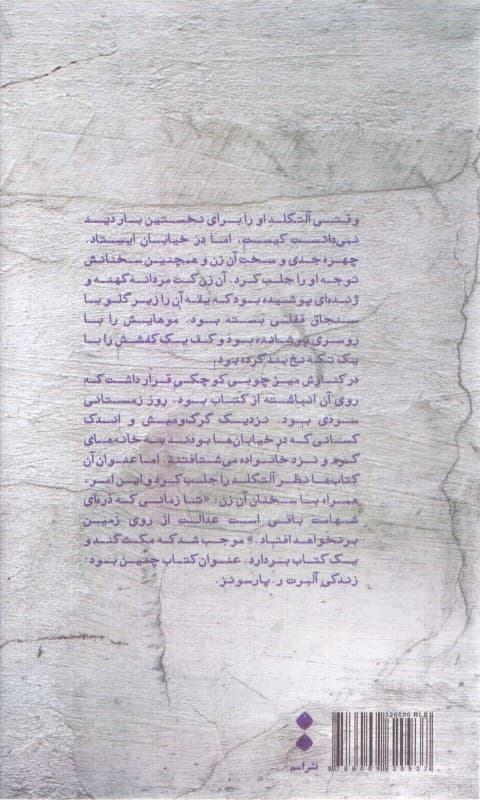 وقتی آلتگلد او را برای نخستین بار دید
نمی‌دانست کیست، اما در خیابان ایستاد.
چهره جدی و سخت آن زن و همچنین سخنانش
توجه او را جلب کرد. آن زن کت مردانه کهنه و
ژنده‌ای پوشیده بود که یقه آن را زیر گلو با
سنجاق قفلی بسته بود. موهایش را با
روسری پوشانده بود و کف یک کفشش را با
یک تکه نخ بند کرده بود.
در کنارش میز چوبی کوچکی قرار داشت که
روی آن انباشته از کتاب بود. روز زمستانی
سردی بود. نزدیک گرگ‌ومیش و اندک
کسانی که در خیابان‌ها بودند به خانه‌های
گرم و نزد خانواده می‌شتافتند. اما عنوان آن
کتاب‌ها نظر آلتگلد را جلب کرد و این امر،
همراه با سخنان آن زن: «تا زمانی که ذره‌ای
شهامت باقی است عدالت از روی زمین
برنخواهد افتاد.» موجب شد که مکث کند و
یک کتاب بردارد. عنوان کتاب چنین بود:
زندگی آلبرت ر. پارسونز.
نشر اسم